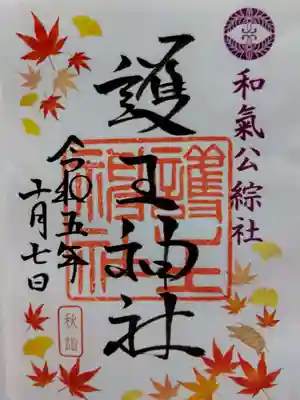 和氣公綜社
護王神社
護王神社
令和五年
十一月七日
秋詣